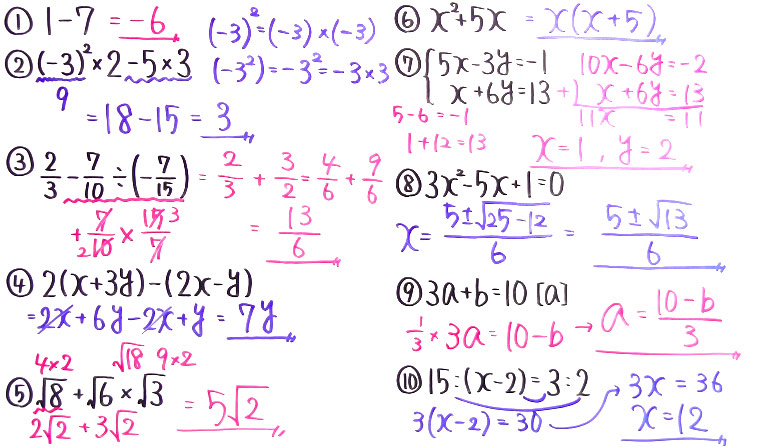 ① 1-7 = -6 (-3)² = (-3)×(-3)
② (-3)²×2-5×3 (-3²) = -3² = -3×3
9
= 18-15 = 3
③ 2/3 - 7/10 ÷ (-7/15) = 2/3 + 3/2 = 4/6 + 9/6
+ 7/10 × 15/7 = 13/6
2 3
④ 2(x+3y)-(2x-y)
= 2x+6y-2x+y = 7y
4×2 √18 9×2
⑤ √8 + √6 × √3 = 5√2
2√2 + 3√2
⑥ x²+5x = x(x+5)
⑦ { 5x-3y=-1 10x-6y=-2
x+6y=13 +) x+6y=13
5-6=-1 11x =11
1+12=13
x=1, y=2
⑧ 3x²-5x+1=0
x= 5±√25-12/6 = 5±√13/6
⑨ 3a+b=10 [a]
1/3 × 3a = 10-b → a = 10-b/3
⑩ 15:(x-2)=3:2
3(x-2)=30 → 3x = 36
x=12